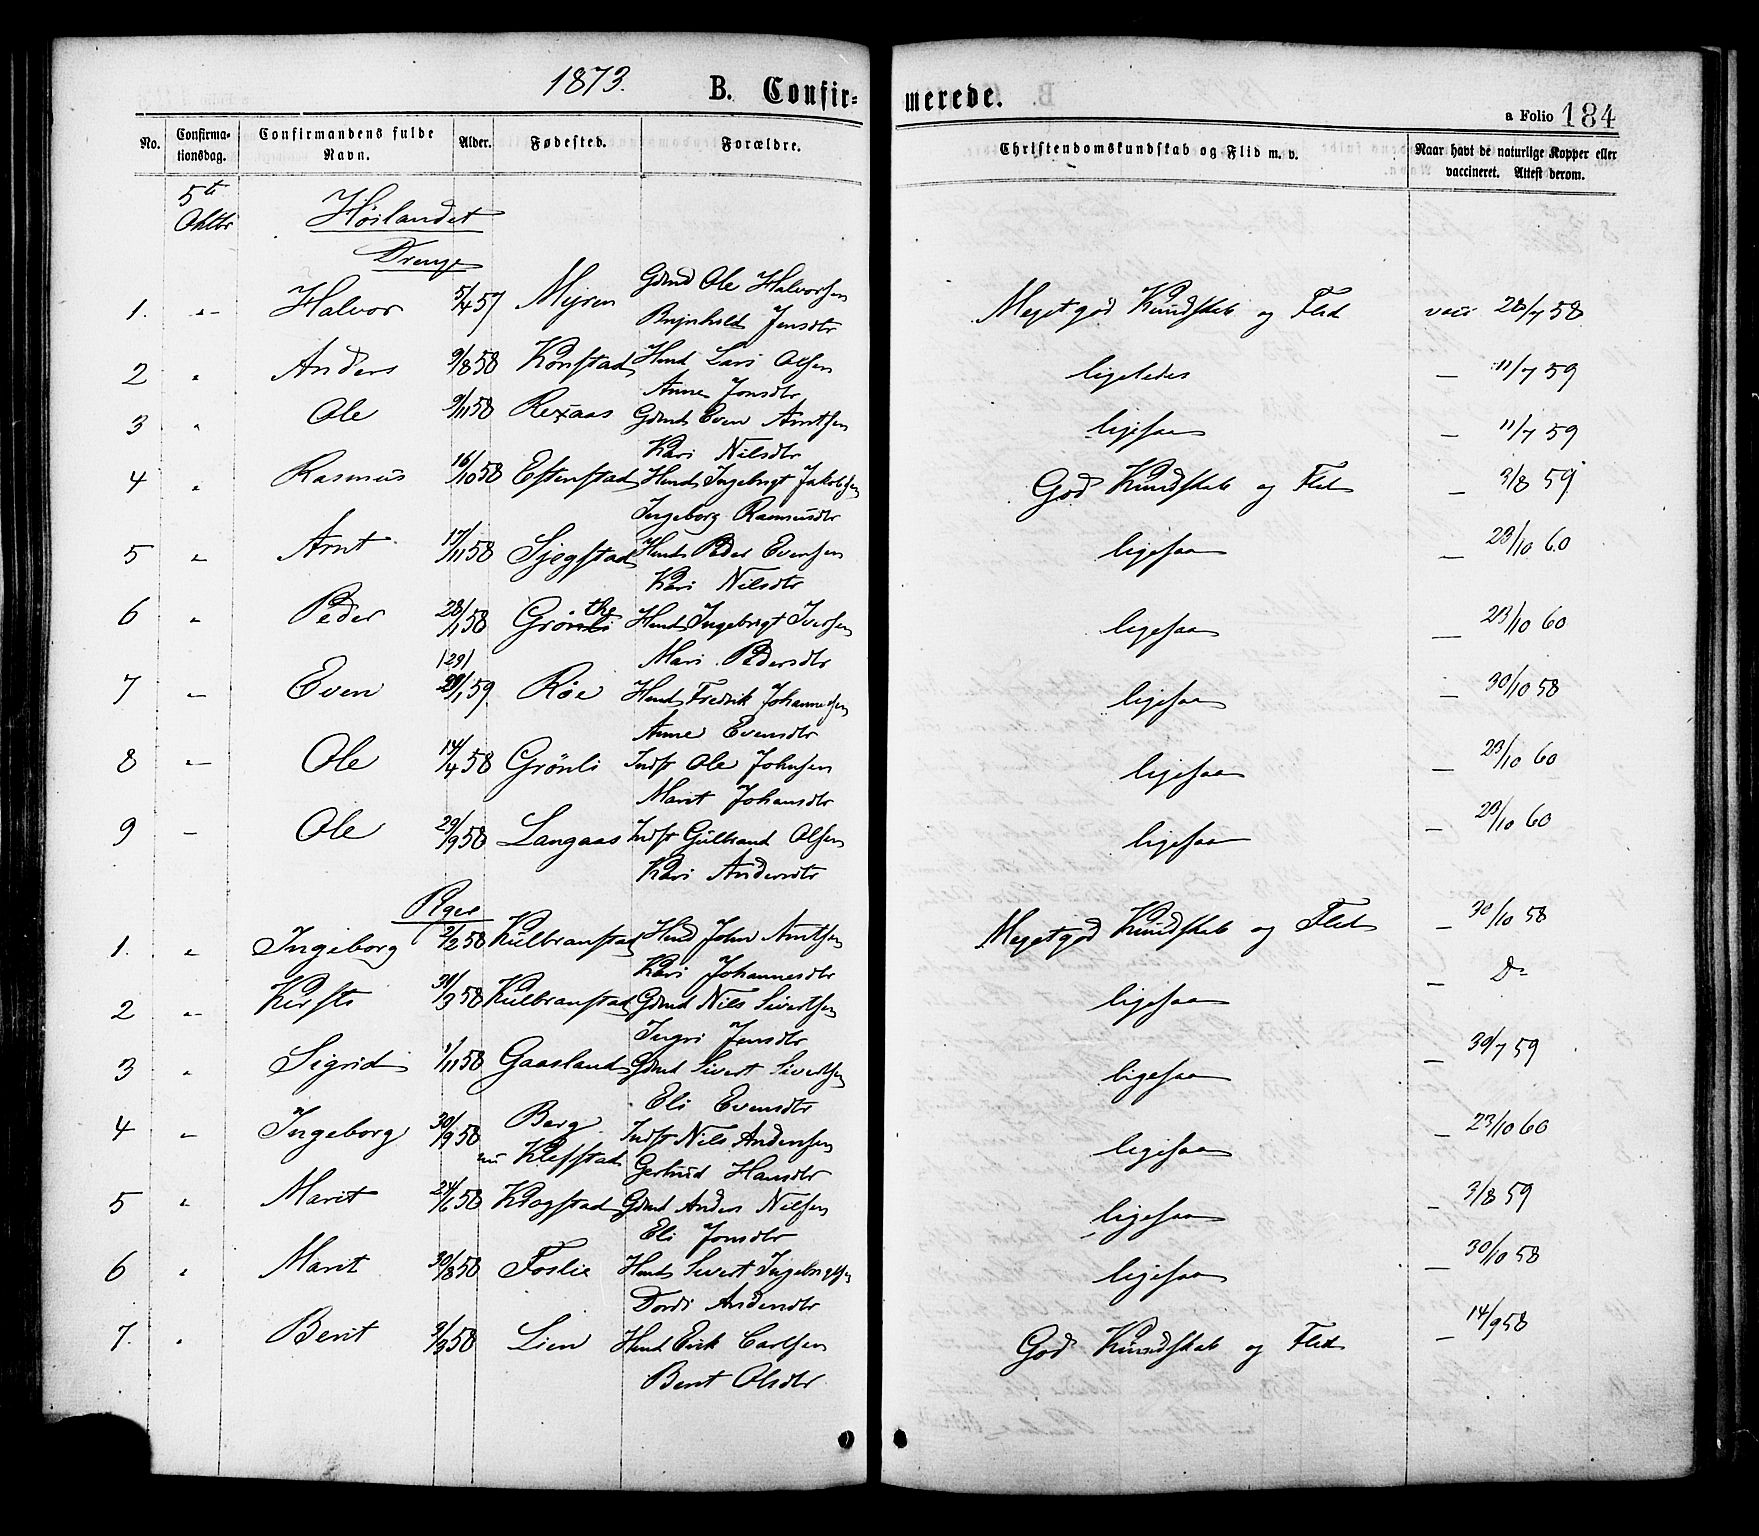 1873. B. Confir-merede. a Folio 184
No. Confirma-tionsdag. Confirmandens fulde Navn. Alder. Fødested. Forældre. Christendomskundskab og Flid m. v. Naar havt de naturlige Kopper eller vaccineret. Attest derom.
5te Oktbr Høilandet
Drenge
1. " Halvor 5/4 57 Myren Gdmd Ole Halvorsen Meget god Kundskab og Flid vacc 28/7 58
Brynhild Jensdtr
2 " Anders 9/8 58 Konstad Hmd Lars Olsen ligeledes — 11/7 59
Anne Jonsdtr
3 " Ole 9/11 58 Rexaas Gdmd Even Arntsen ligesaa — 11/7 59
Kari Nilsdtr
4 " Rasmus 16/10 58 Estenstad Hmd Ingebrigt Jakobsen God Kundskab og Flid — 3/8 59
Ingeborg Rasmusdtr
5 " Arnt 17/11 58 Sjegstad Hmd Peder Evensen ligesaa — 23/10 60
Kari Nilsdtr
6 " Peder 28/1 58 Grönli Hmd Ingebrigt Iversen ligesaa — 23/10 60
Mari Pedersdtr
7 " Even 29/1 59 Röe Hmd Fredrik Johannessen ligesaa — 30/10 58
Anne Evensdtr
8 " Ole 14/4 58 Grönli Indst Ole Johnsen ligesaa — 23/10 60
Marit Johansdtr
9 — Ole 29/9 58 Langaas Indst Gulbrand Olsen ligesaa — 23/10 60
Kari Andersdtr
Pger
1. " Ingeborg 2/2 58 Kulbranstad Hmd John Arntsen Meget god Kundskab og Flid — 30/10 58
Kari Johannesdtr
2 " Kirsti 31/3 58 Kulbranstad Gdmd Nils Sivertsen ligesaa — Do
Ingri Jensdtr
3 " Sigrid 1/11 58 Gaasland Gdmd Sivert Sivertsen ligesaa — 30/7 59
Eli Evensdtr
4 " Ingeborg 30/9 58 Berg Indst Nils Andersen ligesaa — 23/10 60
nu Klefstad Gertrud Hansdtr
5 " Marit 24/6 58 Krogstad Gdmd Anders Nilsen ligesaa — 3/8 59
Eli Jonsdtr
6 " Marit 30/8 58 Foslie Hmd Sivert Ingebrigtsen ligesaa — 30/10 58
Dordi Andersdtr
7. " Berit 9/3 58 Lien Hmd Erik Carlsen God Kundskab og Flid — 14/9 58
Berit Olsdtr